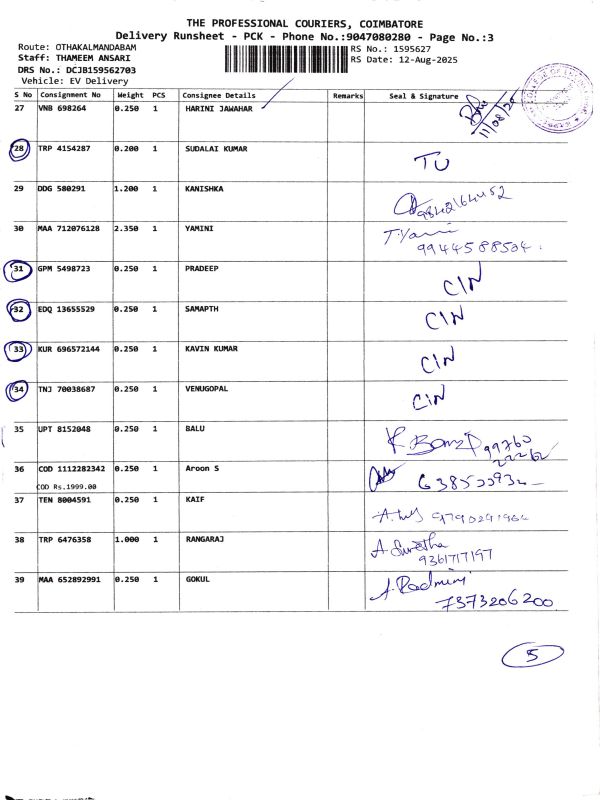 THE PROFESSIONAL COURIERS, COIMBATORE
Delivery Runsheet - PCK - Phone No.:9047080280 - Page No.:3
Route: OTHAKALMANDABAM
RS No.: 1595627
Staff: THAMEEM ANSARI
RS Date: 12-Aug-2025
DRS No.: DCJB159562703
Vehicle: EV Delivery
S No Consignment No Weight PCS Consignee Details Remarks Seal & Signature
27 VNB 698264 0.250 1 HARINI JAWAHAR 11/08/25
28 TRP 4154287 0.200 1 SUDALAI KUMAR TU
29 DDG 580291 1.200 1 KANISHKA 9842164452
30 MAA 712076128 2.350 1 YAMINI T.Yamini
9944588504.
31 GPM 5498723 0.250 1 PRADEEP CIN
32 EDQ 13655529 0.250 1 SAMAPTH CIN
33 KUR 696572144 0.250 1 KAVIN KUMAR CIN
34 TNJ 70038687 0.250 1 VENUGOPAL CIN
35 UPT 8152048 0.250 1 BALU 99760
22262
36 COD 1112282342 0.250 1 Aroon S
COD Rs.1999.00
37 TEN 8004591 0.250 1 KAIF 9790291964
38 TRP 6476358 1.000 1 RANGARAJ A Suretha
9361717197
39 MAA 652892991 0.250 1 GOKUL A. Padmini
7373206200
5